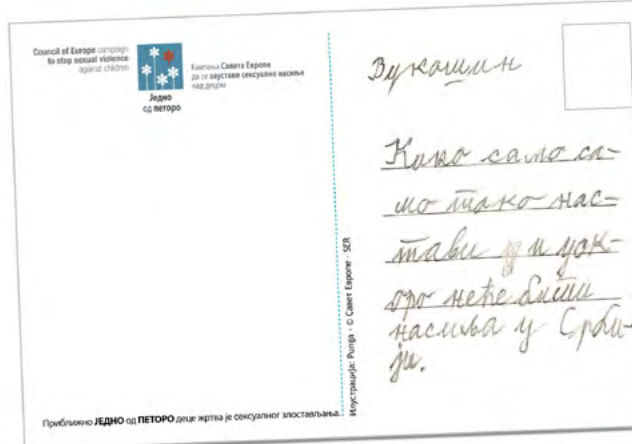 Council of Europe campaign
to stop sexual violence
against children
Једно
од петоро
Кампања Савета Европе
да се заустави сексуално насиље
над децом
Приближно ЈЕДНО од ПЕТОРО деце жртва је сексуалног злостављања.
Илустрација: Punga - © Савет Европе - SER
Вукашин
Како само са-
мо тако нас-
тави и уск-
оро неће бити
насиља у Срби-
ји.